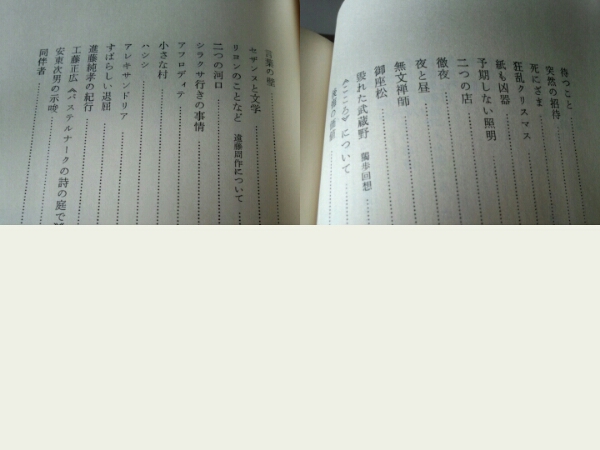 待つこと
突然の招待
死にざま
狂乱クリスマス
紙も凶器
予期しない照明
二つの店
徹夜
夜と昼
無文禅師
御座松
毀れた武蔵野 獨歩回想
《こころ》について
言葉の壁
セザンヌと文学
リヨンのことなど 遠藤周作について
二つの河口
シラクサ行きの事情
アフロディテ
小さな村
ハシシ
アレキサンドリア
すばらしい退屈
進藤純孝の紀行
工藤正広《パステルナークの詩の庭で》
安東次男の示唆
同伴者